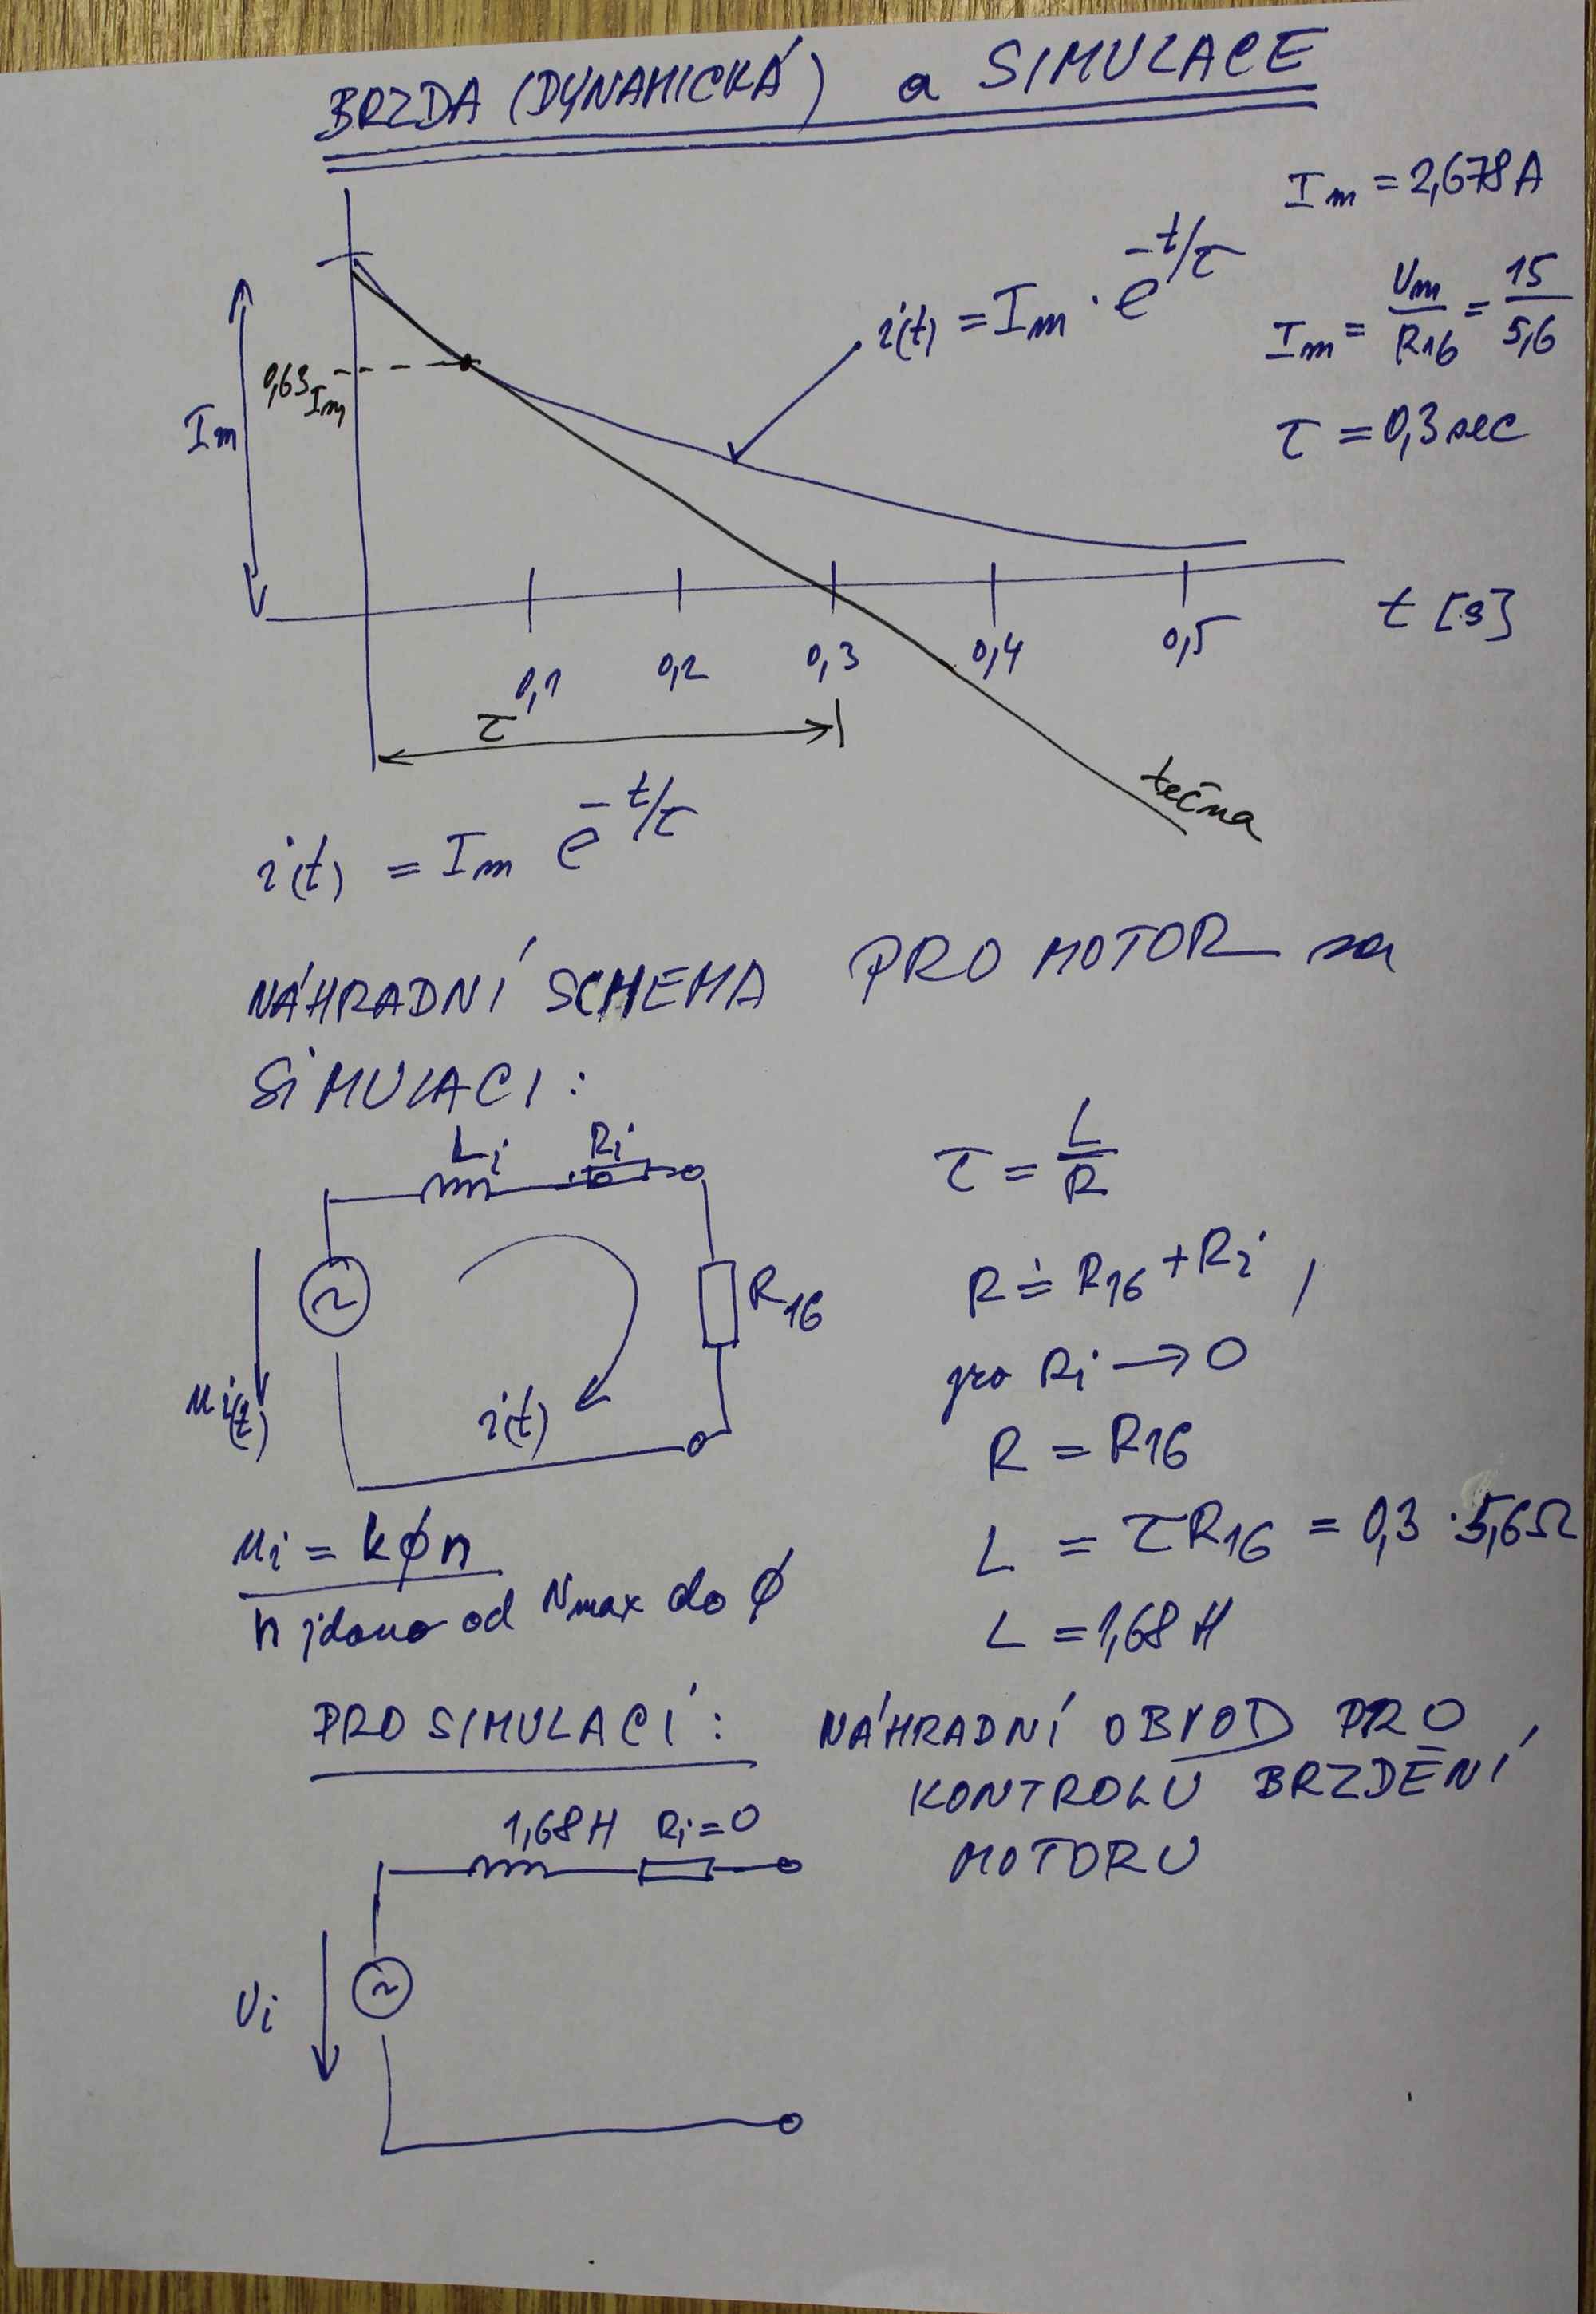 BRZDA (DYNAMICKÁ) a SIMULACE
Im = 2,678A
i(t) = Im · e^-t/τ
Im = Um/R16 = 15/5,6
τ = 0,3 sec
0,63 Im
Im
0,1 0,2 0,3 0,4 0,5
t [s]
τ
tečna
i(t) = Im e^-t/τ
NÁHRADNÍ SCHEMA PRO MOTOR
SIMULACI:
Li Ri
R16
ui(t)
i(t)
τ = L/R
R ≐ R16 + Ri,
pro Ri → 0
R = R16
L = τR16 = 0,3 · 5,6Ω
L = 1,68 H
ui = kϕn
n jdouo od Nmax do ϕ
PRO SIMULACI:
NÁHRADNÍ OBVOD PRO
KONTROLU BRZDĚNÍ
MOTORU
1,68H Ri=0
Ui